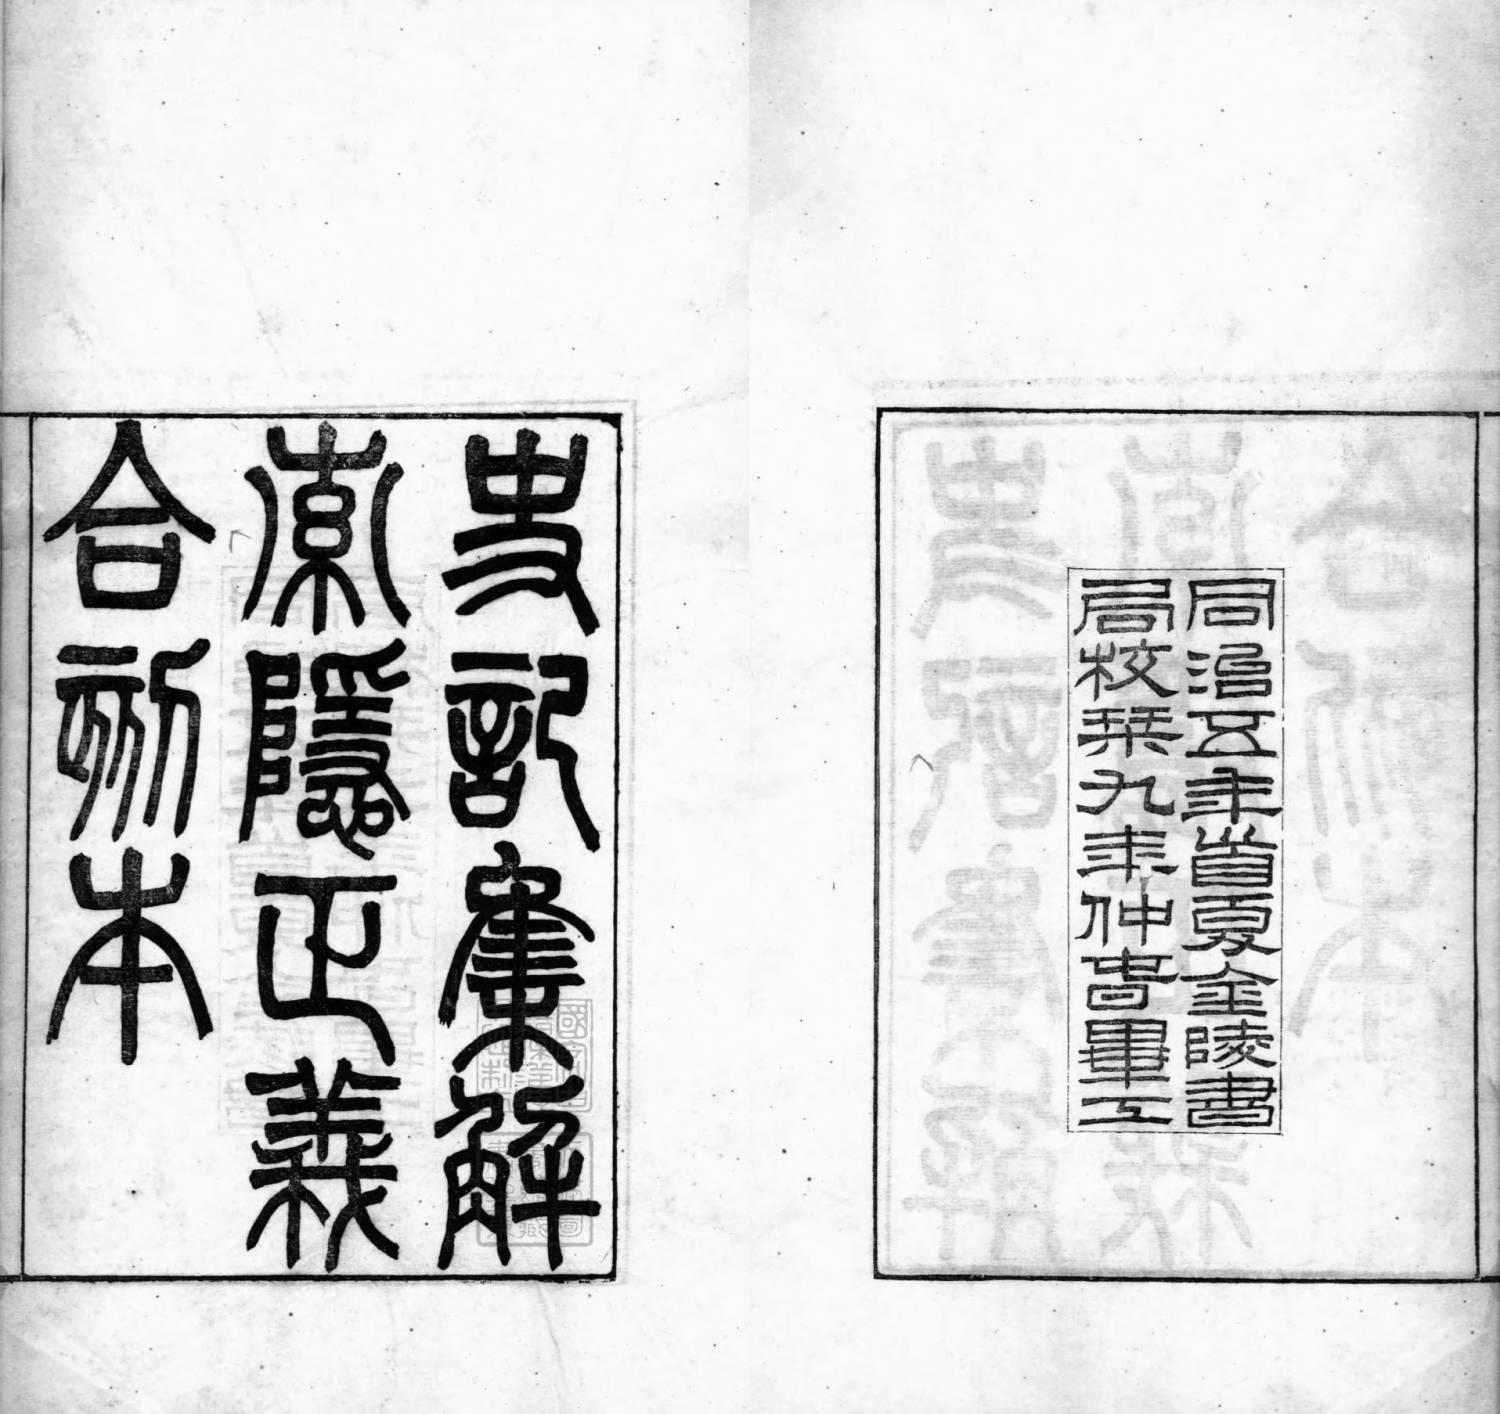 史記集解
索隱正義
合刻本
同治五年首夏金陵書
局校栞九年仲春畢工